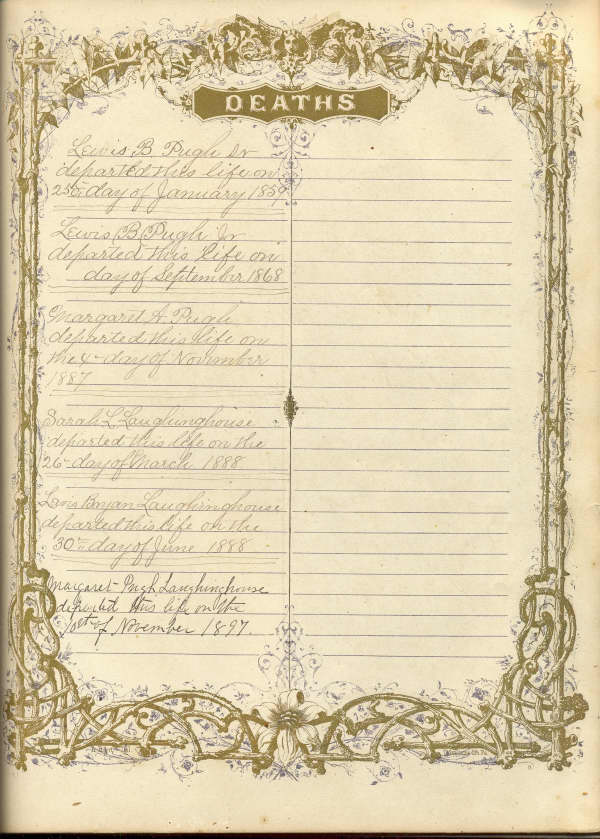 DEATHS
Lewis B Pugh Sr
departed this life on
25th day of January 1859
Lewis B Pugh Jr
departed this life on
day of September 1868
Margaret A Pugh
departed this life on
the 4- day of November
1887
Sarah L Laughinghouse
departed this life on the
26- day of March 1888
Bryan Laughinghouse
departed this life on the
30th day of June 1888
Margaret Pugh Laughinghouse
departed this life on the
of November 1897.